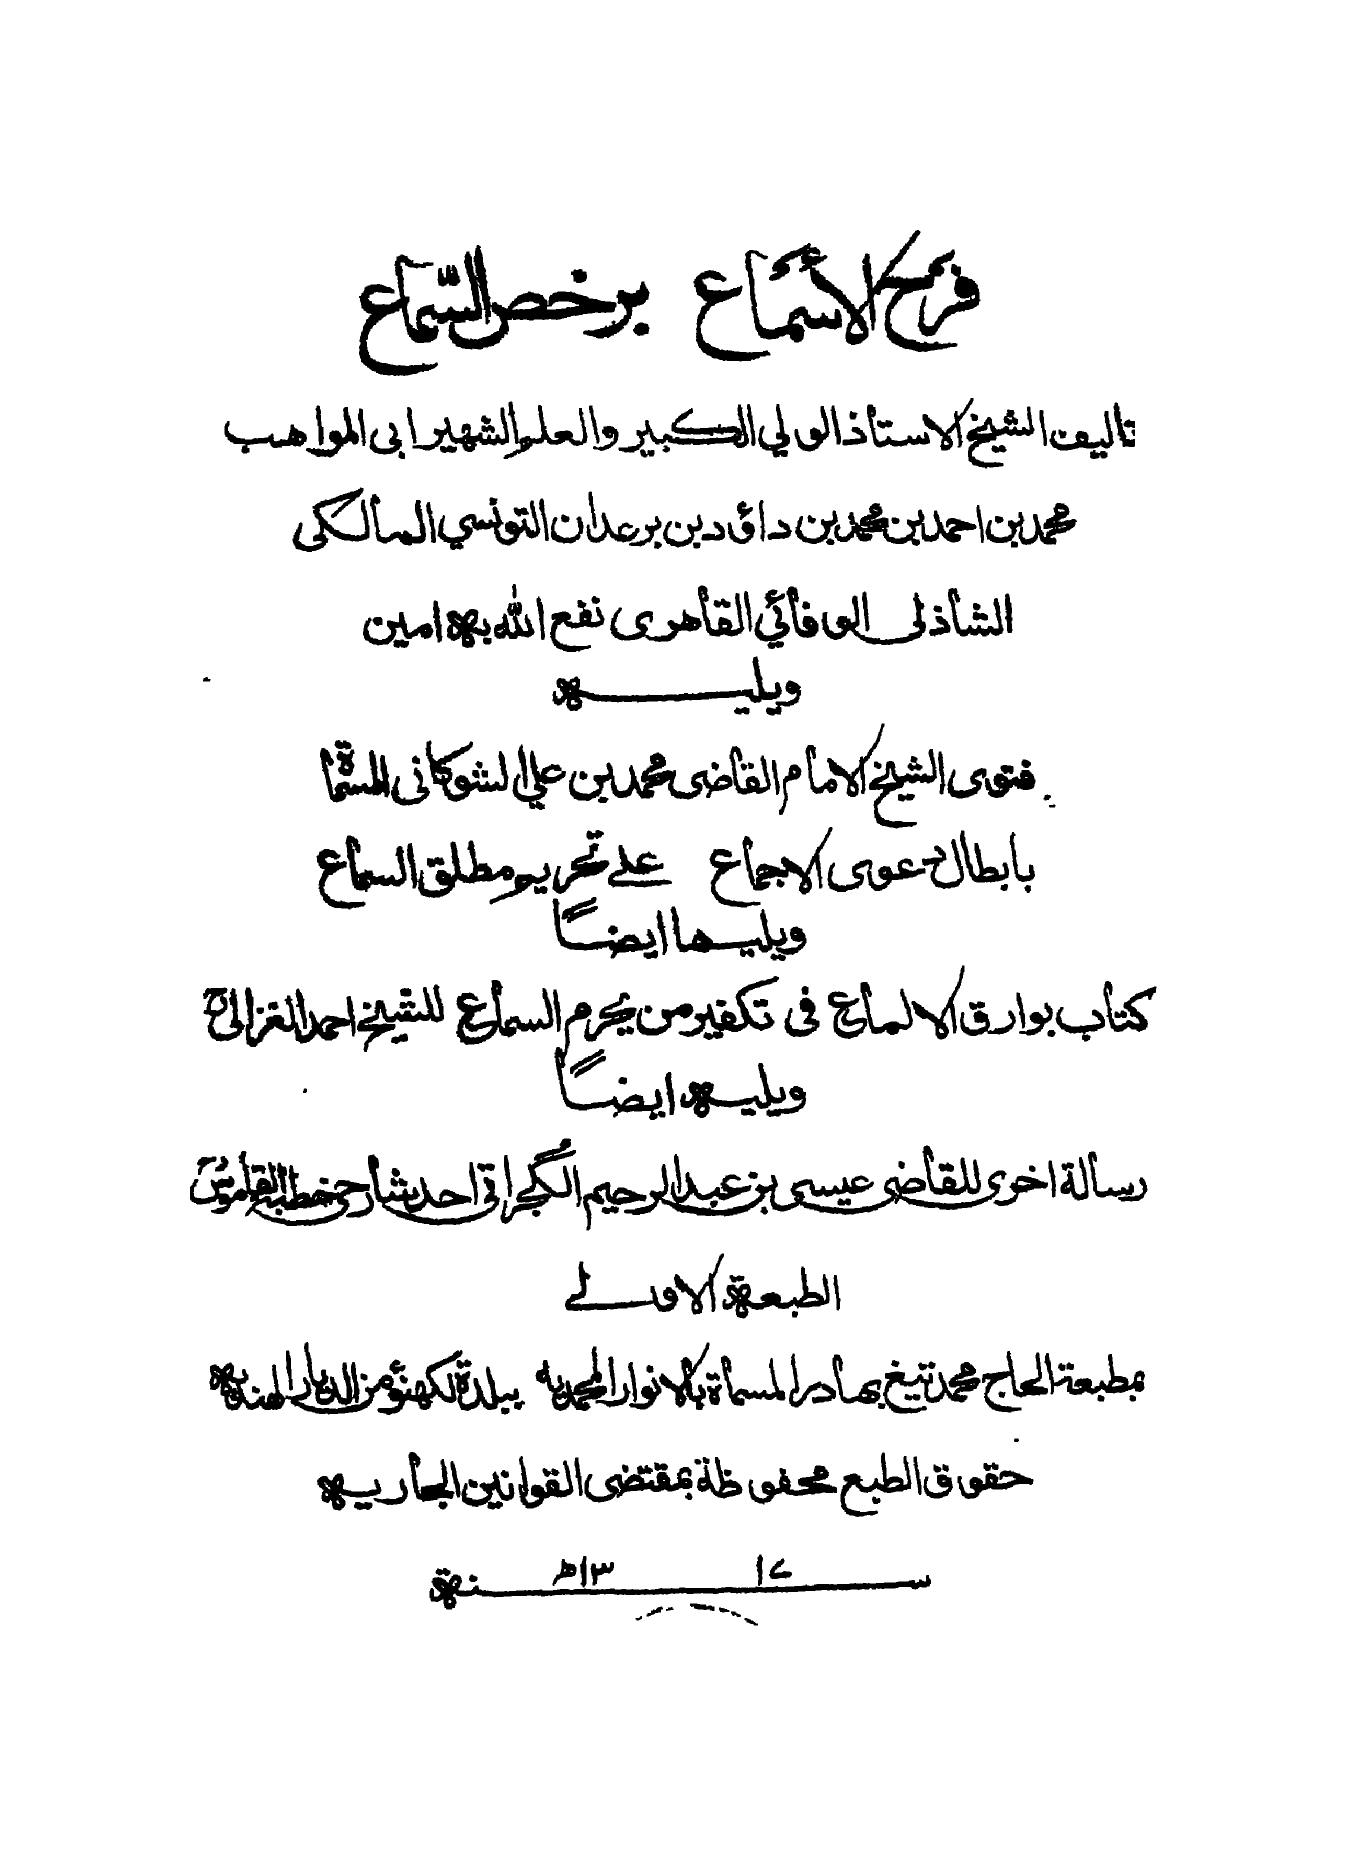 فرح الأسماع برخص السّماع
تاليف الشيخ الاستاذ الولي الكبير والعلم الشهير ابى المواهب
محمد بن احمد بن محمد بن داؤد بن بن عدان التونسي المالكى
الشاذلى الوفائي القاهرى نفع الله به امين
ويليه
فتوى الشيخ الامام القاضى محمد بن علي الشوكانى المسمّاة
بابطال دعوى الاجماع على تحريم مطلق السماع
ويليها ايضاً
كتاب بوارق الالماع فى تكفير من يحرم السماع للشيخ احمد الغزالى
ويليه ايضاً
رسالة اخرى للقاضى عيسى بن عبد الرحيم الگجراتى احد شارحى خطبة القاموس
الطبعة الاولے
بمطبعة الحاج محمد تيغ بهادر المسماة بالانوار المحمديه ببلدة لكهنؤ من الديار الهنديه
حقوق الطبع محفوظة بمقتضى القوانين الجاريه
سنة ١٣١٧ھ